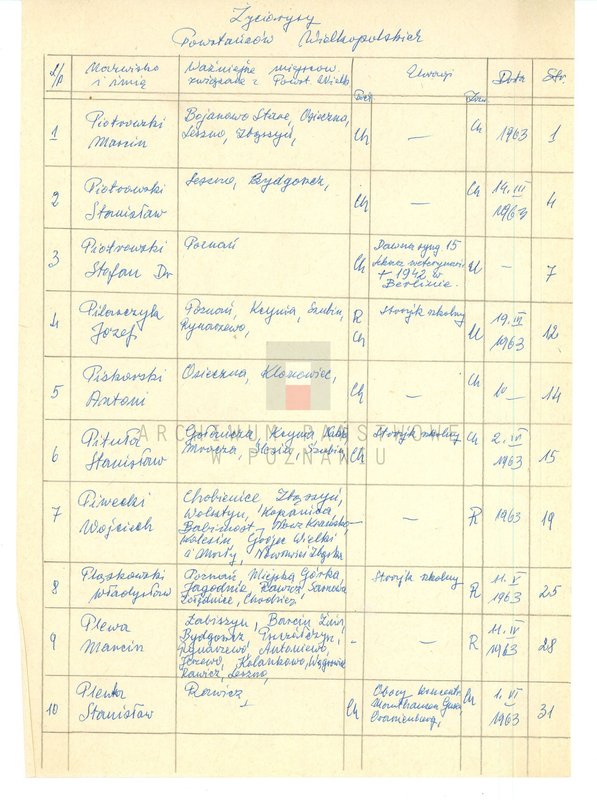 Życiorysy
Powstańców Wielkopolskich
L/p Nazwisko i imię Ważniejsze miejscow. związane z Powst. Wielk. Uwagi Data Str.
1 Piotrowski Marcin Bojanowo Stare, Osieczna, Leszno, Zbąszyń, Ch — Ch 1963 1
2 Piotrowski Stanisław Leszno, Bydgoszcz, Ch — Ch 14. III 1963 4
3 Piotrowski Stefan Dr Poznań Ch 15 lekarz weterynarii + 1942 w Berlinie. U — 7
4 Pilarczyk Józef Poznań, Kcynia, Szubin, Rynarzewo, R Ch szkolny U 19. III 1963 12
5 Piskorski Antoni Osieczna, Ch — Ch 14
6 Pituła Stanisław Gołańcz, Kcynia, Mrocza, Ślesin, Szubin, Ch szkolny Ch 2. IV 1963 15
7 Piwecki Wojciech Chobienice Zbąszyń, Wolsztyn, Kopanica, Babimost, Nowe Kramsko Kolesin, Grójec Wielki i Mały, Nowawieś Zbąska — — R 1963 19
8 Plaskowski Władysław Poznań, Miejska Górka, Jagodnia, Rawicz, Sarnowa Chodzież R 11. V 1963 25
9 Plewa Marcin Łabiszyn, Barcin Żnin, Bydgoszcz Rynarzewo, Antoniewo, Kołankowo, Rawicz, Leszno, - - R 11. IV 1963 28
10 Plenta Stanisław Rawicz Ch Obozy koncentr. Mauthausen Gusen, Oranienburg, Ch 1. VI 1963 31
ARCHIWUM PAŃSTWOWE
W POZNANIU